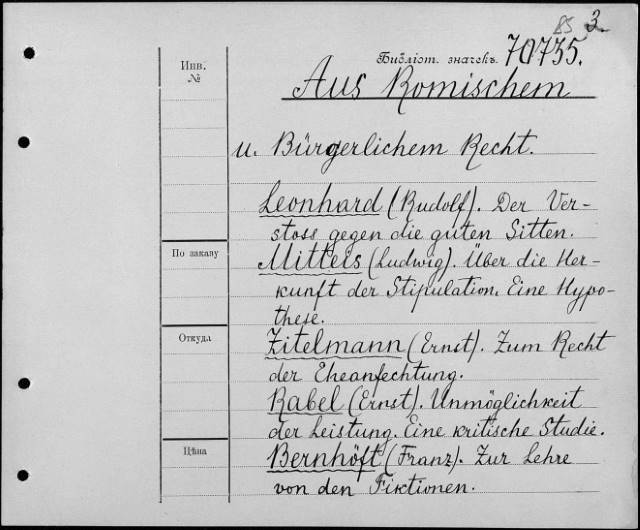 85 3.
Библіот. значекъ. 70735.
Инв.
№
Aus Romischem
u. Bürgerlichem Recht.
Leonhard (Rudolf). Der Ver-
stoss gegen die guten Sitten.
По заказу
Mitteis (Ludwig). Über die Her-
kunft der Stipulation. Eine Hypo-
these.
Откуда
Zitelmann (Ernst). Zum Recht
der Eheanfechtung.
Rabel (Ernst). Unmöglichkeit
der Leistung. Eine kritische Studie.
Цѣна
Bernhöft (Franz). Zur Lehre
von den Fiktionen.